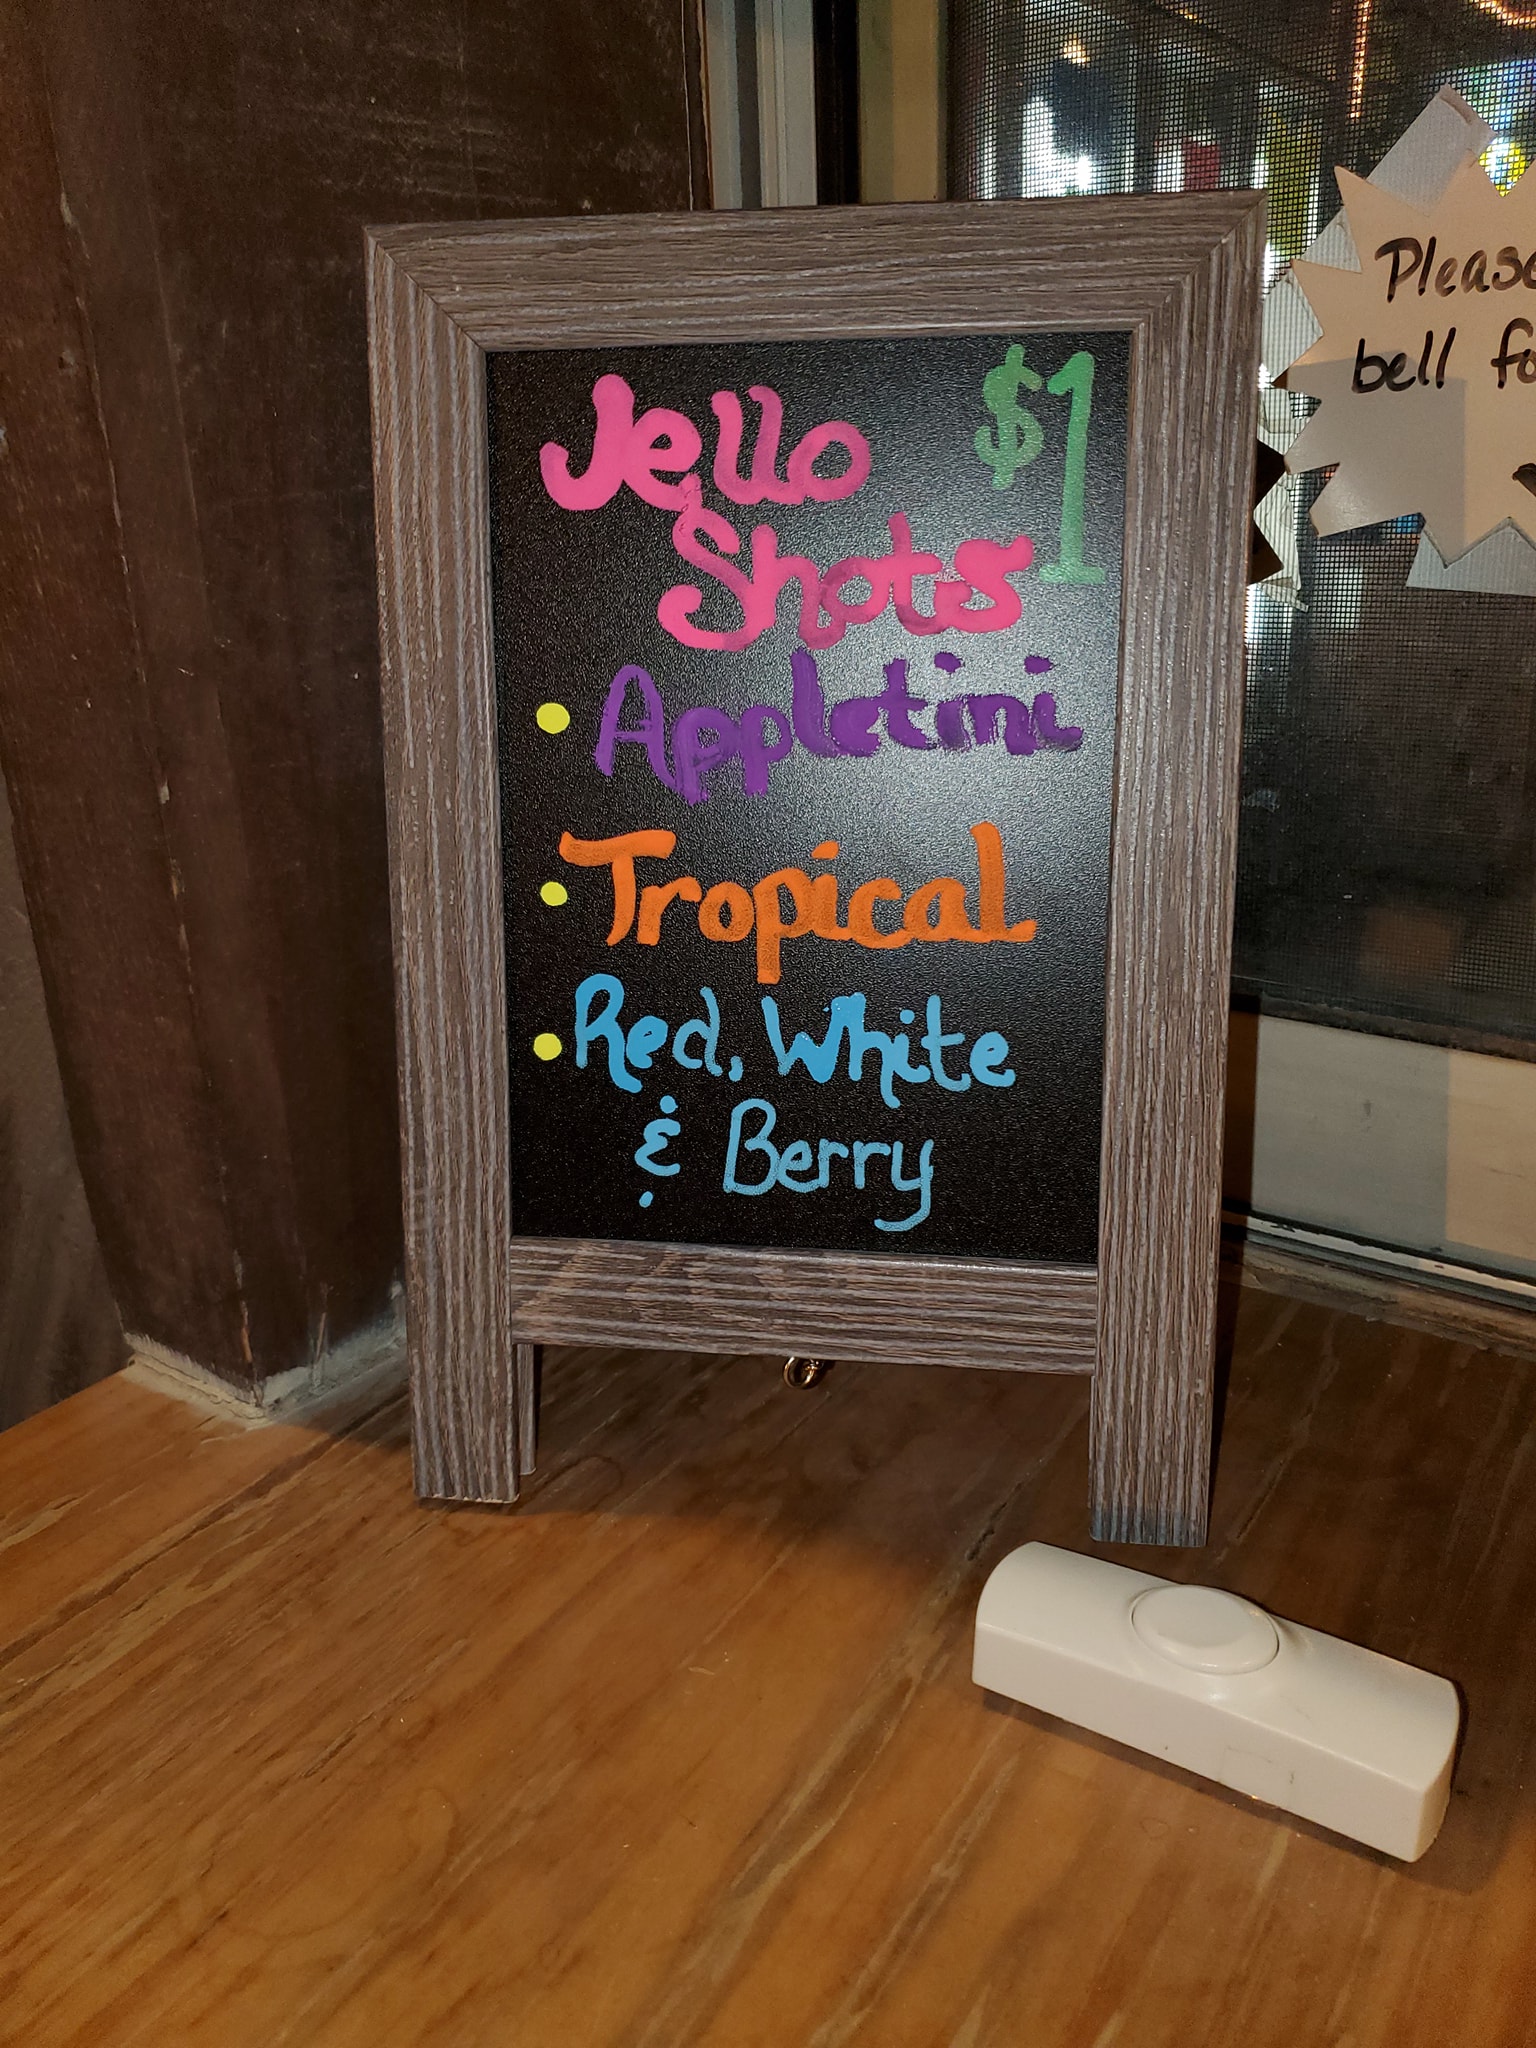 Jello $1
Shots
• Appletini
• Tropical
• Red, White
& Berry
Please
bell